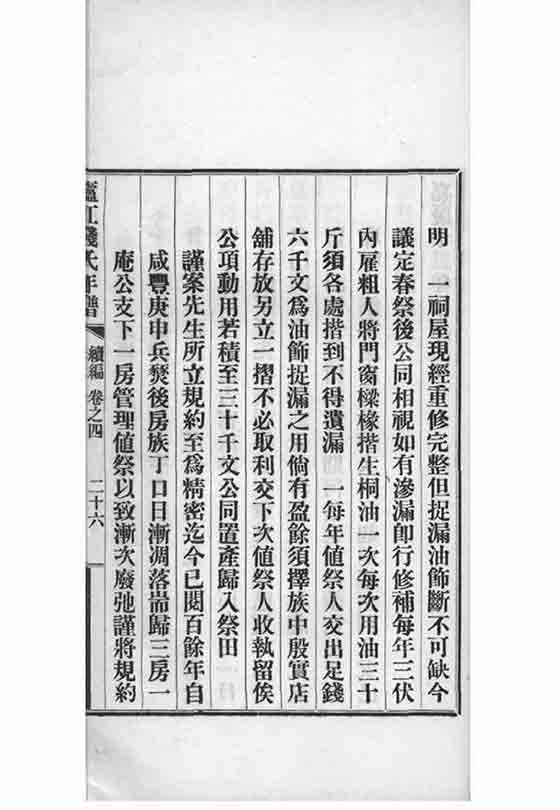 明　一祠屋現經重修完整但捉漏油飾斷不可缺今
議定春祭後公同相視如有滲漏卽行修補每年三伏
內雇粗人將門窗樑椽揩生桐油一次每次用油三十
斤須各處揩到不得遺漏　一每年値祭人交出足錢
六千文爲油飾捉漏之用倘有盈餘須擇族中殷實店
舖存放另立一摺不必取利交下次値祭人收執留俟
公項動用若積至三十千文公同置產歸入祭田
謹案先生所立規約至爲精密迄今已閱百餘年自
咸豐庚申兵燹後房族丁口日漸凋落耑歸三房一
庵公支下一房管理値祭以致漸次廢弛謹將規約
廬江錢氏年譜　續編　卷之四　二十六